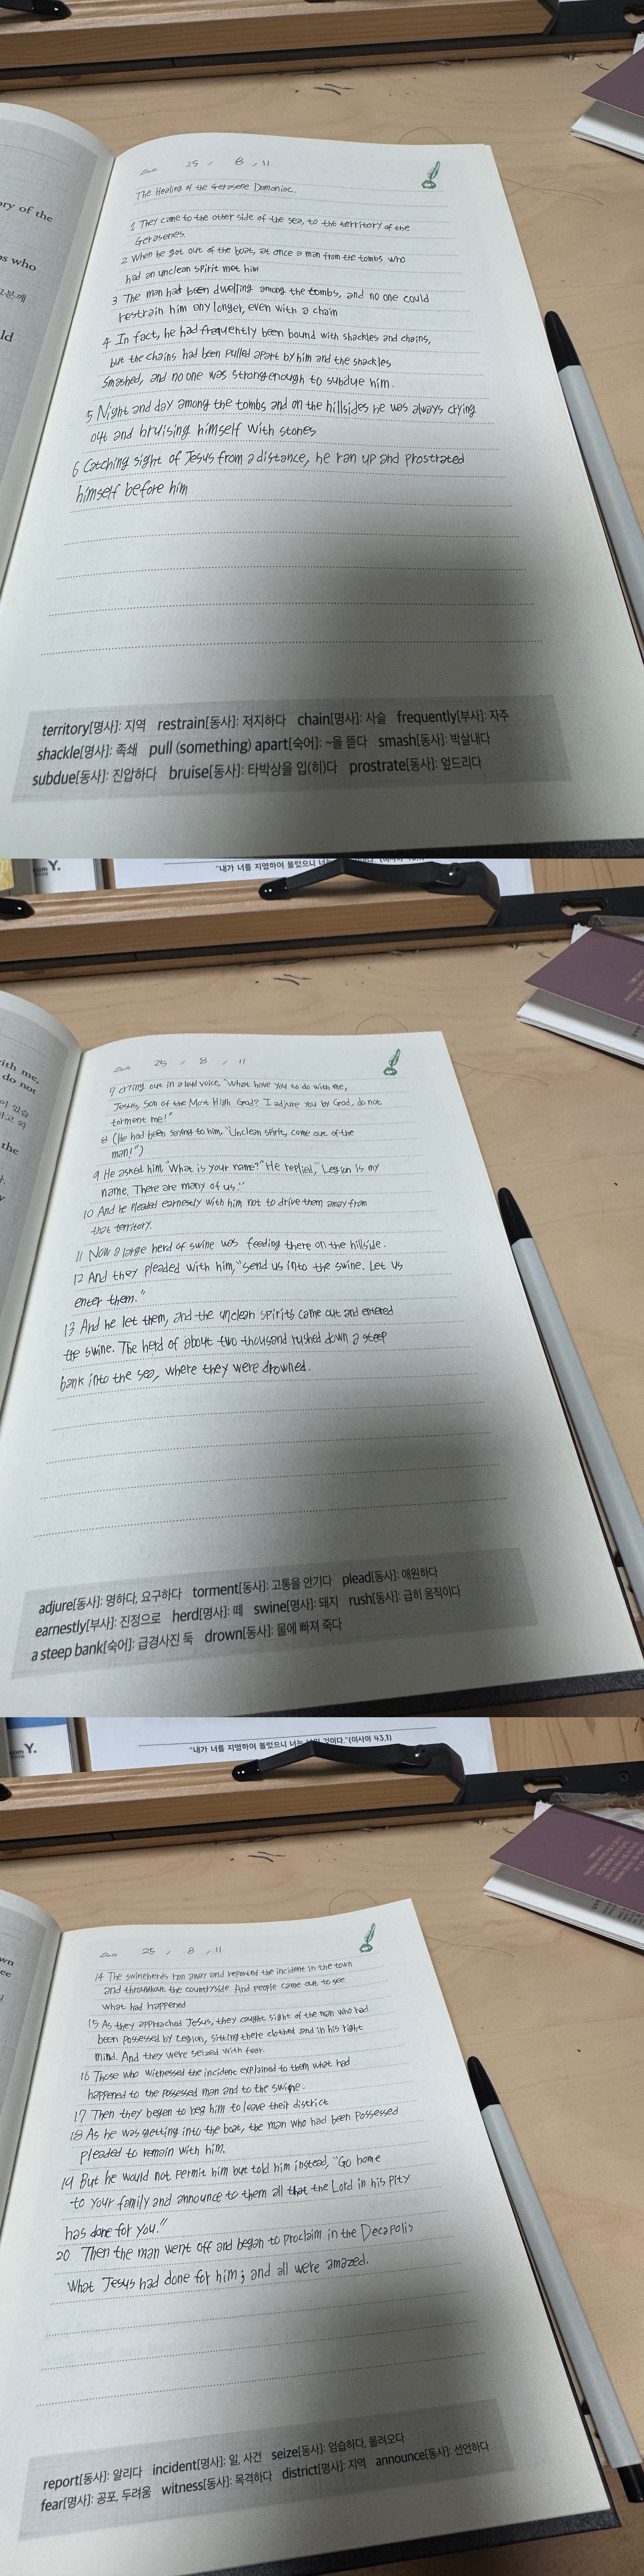 ory of the
os who
그분께
ld
Date 25 / 8 / 11
The Healing of the Gerasene Domoniac.
1 They came to the other side of the sea, to the territory of the
Gerasenes.
2 When he got out of the boat, at once a man from the tombs who
had an unclean spirit met him
3 The man had been dwelling among the tombs, and no one could
restrain him any longer, even with a chain
4 In fact, he had frequently been bound with shackles and chains,
but the chains had been pulled apart by him and the shackles
smashed, and no one was strong enough to subdue him.
5 Night and day among the tombs and on the hillsides he was always crying
out and bruising himself with stones
6 Catching sight of Jesus from a distance, he ran up and prostrated
himself before him
territory[명사]: 지역 restrain[동사]: 저지하다 chain[명사]: 사슬 frequently[부사]: 자주
shackle[명사]: 족쇄 pull (something) apart[숙어]: ~을 뜯다 smash[동사]: 박살내다
subdue[동사]: 진압하다 bruise[동사]: 타박상을 입(히)다 prostrate[동사]: 엎드리다
com Y.
"내가 너를 지명하여 불렀으니
ith me,
do not
이 있습
하고 외
the
Date 25 / 8 / 11
7 crying out in a loud voice, "What have you to do with me,
Jesus, Son of the Most High God? I adjure you by God, do not
torment me!"
8 (He had been saying to him, "Unclean spirit, come out of the
man!")
9 He asked him, "What is your name?" He replied, "Legion is my
name. There are many of us."
10 And he pleaded earnestly with him not to drive them away from
that territory.
11 Now a large herd of swine was feeding there on the hillside.
12 And they pleaded with him, "Send us into the swine. Let us
enter them."
13 And he let them, and the unclean spirits came out and entered
the swine. The herd of about two thousand rushed down a steep
bank into the sea, where they were drowned.
adjure[동사]: 명하다, 요구하다 torment[동사]: 고통을 안기다 plead[동사]: 애원하다
earnestly[부사]: 진정으로 herd[명사]: 떼 swine[명사]: 돼지 rush[동사]: 급히 움직이다
a steep bank[숙어]: 급경사진 둑 drown[동사]: 물에 빠져 죽다
com Y.
"내가 너를 지명하여 불렀으니 너는 것이다."(이사야 43,1)
wn
ee
Date 25 / 8 / 11
14 The swineherds ran away and reported the incident in the town
and throughout the countryside. And people came out to see
what had happened
15 As they approached Jesus, they caught sight of the man who had
been possessed by Legion, sitting there clothed and in his right
mind. And they were seized with fear.
16 Those who witnessed the incident explained to them what had
happened to the possessed man and to the swine.
17 Then they began to beg him to leave their district
18 As he was getting into the boat, the man who had been possessed
pleaded to remain with him.
19 But he would not permit him but told him instead, "Go home
to your family and announce to them all that the Lord in his pity
has done for you."
20 Then the man went off and began to proclaim in the Decapolis
what Jesus had done for him; and all were amazed.
report[동사]: 알리다 incident[명사]: 일, 사건 seize[동사]: 엄습하다, 몰려오다
fear[명사]: 공포, 두려움 witness[동사]: 목격하다 district[명사]: 지역 announce[동사]: 선언하다